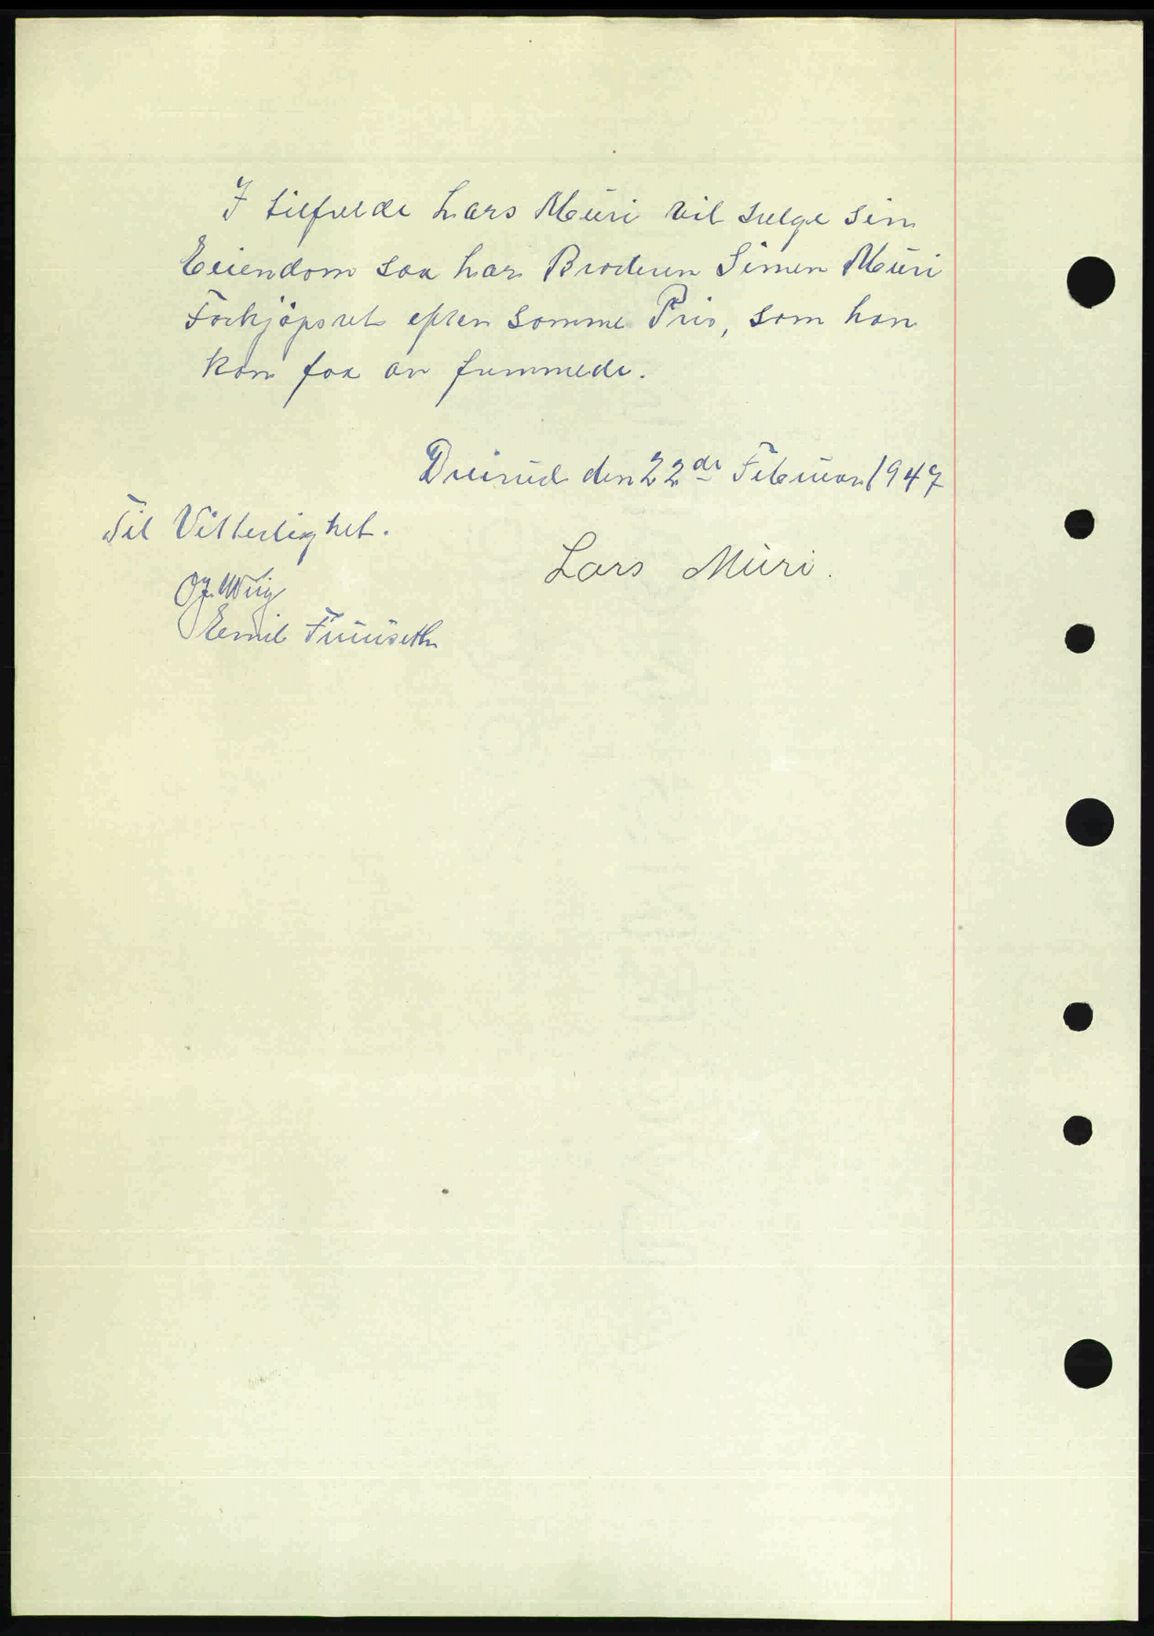 I tilfælde Lars Muri vil sælge sin
Eiendom saa har Broderen Simen Muri
Forkjøpsret efter samme Pris, som han
kan faa av fremmede.
den 22de Februar 1947
Til Vitterlighet.
Lars Muri.
Emil Fuuseth